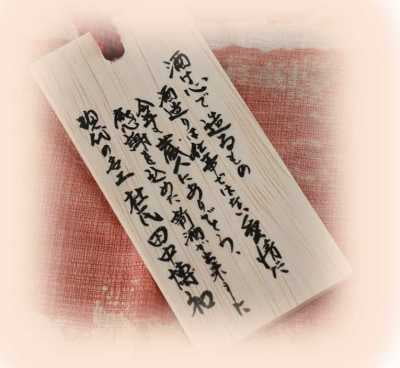 酒は心で造るもの
酒造りは仕事ではない、愛情だ
今年も蔵人にありがとう、
感謝を込めた新酒が出来ました
現代の名工 杜氏 田中博和